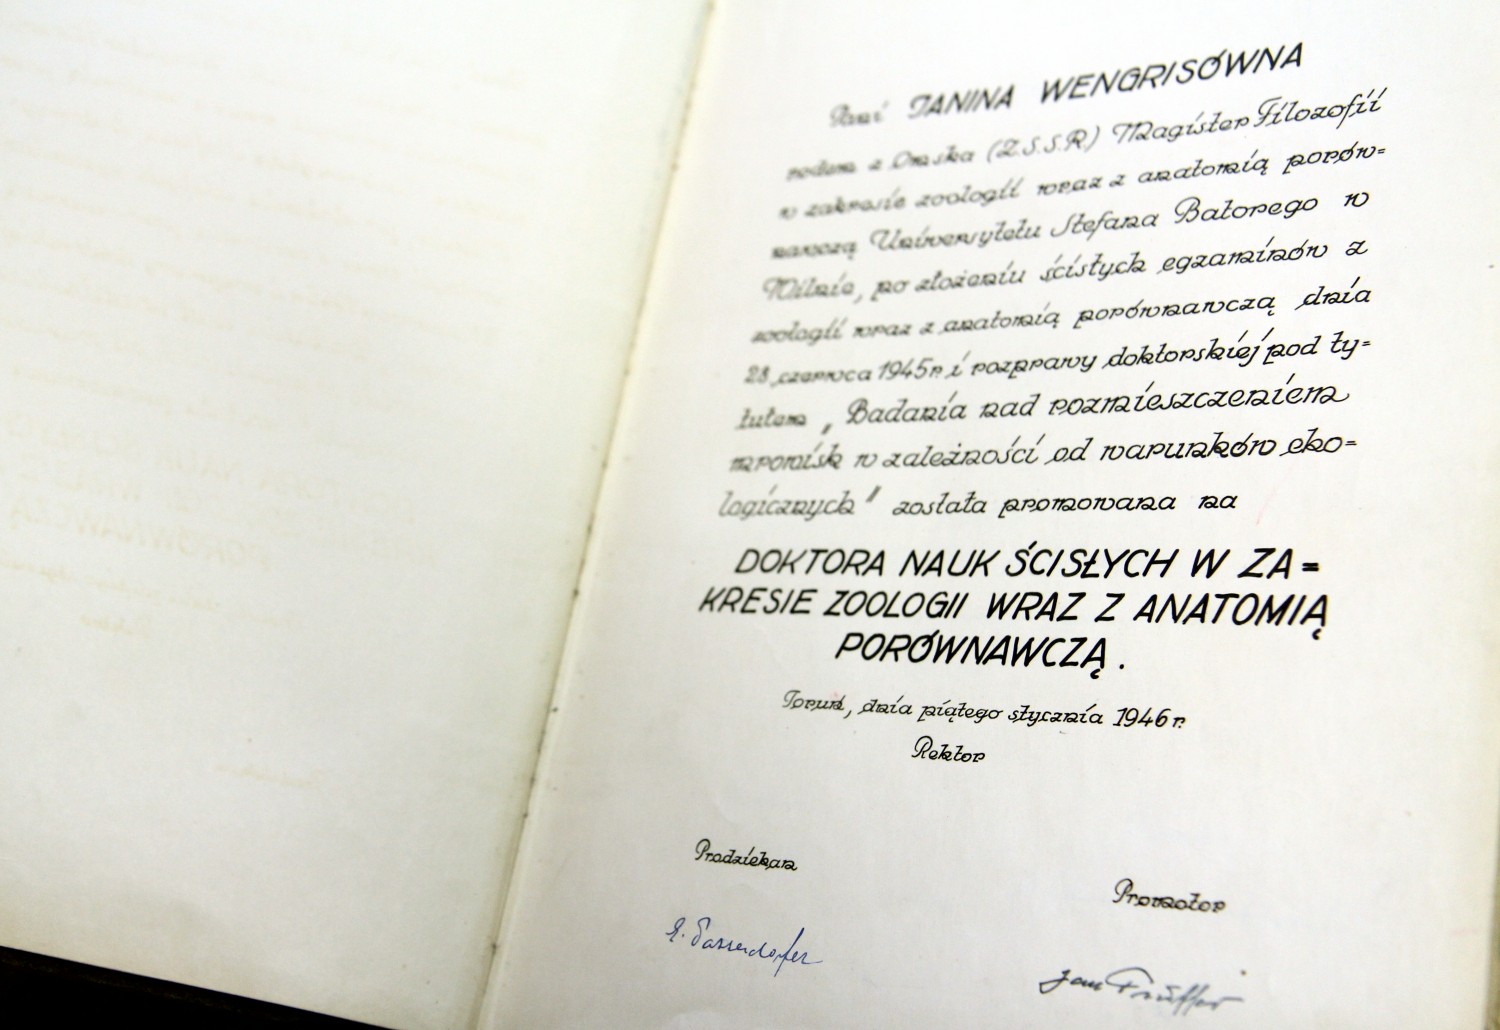 Pani JANINA WENGRISÓWNA
rodem z Omska (Z.S.S.R.) Magister Filozofii
w zakresie zoologii wraz z anatomią porów=
nawczą Uniwersytetu Stefana Batorego w
Wilnie, po złożeniu ścisłych egzaminów z
zoologii wraz z anatomią porównawczą dnia
28 czerwca 1945 r. i rozprawy doktorskiej pod ty=
tułem „Badania nad rozmieszczeniem
mrowisk w zależności od warunków eko=
logicznych" została promowana na
DOKTORA NAUK ŚCISŁYCH W ZA=
KRESIE ZOOLOGII WRAZ Z ANATOMIĄ
PORÓWNAWCZĄ.
Toruń, dnia piątego stycznia 1946 r.
Rektor
Prodziekan
Promotor
E. Passendorfer
Jan Prüffer